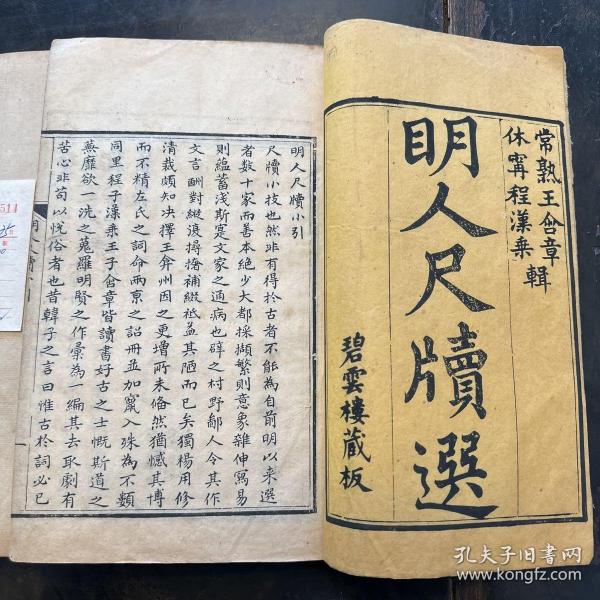 常熟王含章
休甯程漢乘
輯
明人尺牘選
碧雲樓藏板
明人尺牘小引
尺牘小技也然非有得於古者不能為自前明以來選
者數十家而善本絶少大都採擷繁則意象雜伸寫易
則蘊蓄淺斯寔文家之通病也辟之村野鄙人令其作
文言酬對縱復撏撦補綴祗益其陋而已矣獨楊用修
清裁頗知决擇王弇州因之更增所未備然猶憾其博
而不精左氏之詞命兩京之詔冊並加竄入殊為不類
同里程子漢乘王子含章皆讀書好古之士慨斯道之
蕪靡欲一洗之蒐羅明賢之作彙為一編其去取劇有
苦心非苟以悅俗者也昔韓子之言曰惟古於詞必已
514
孔夫子旧书网
www.kongfz.com